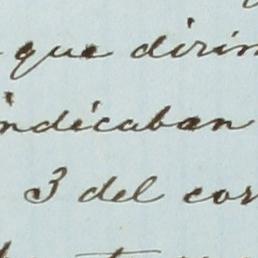 que dirin
indicaban
3 del cor